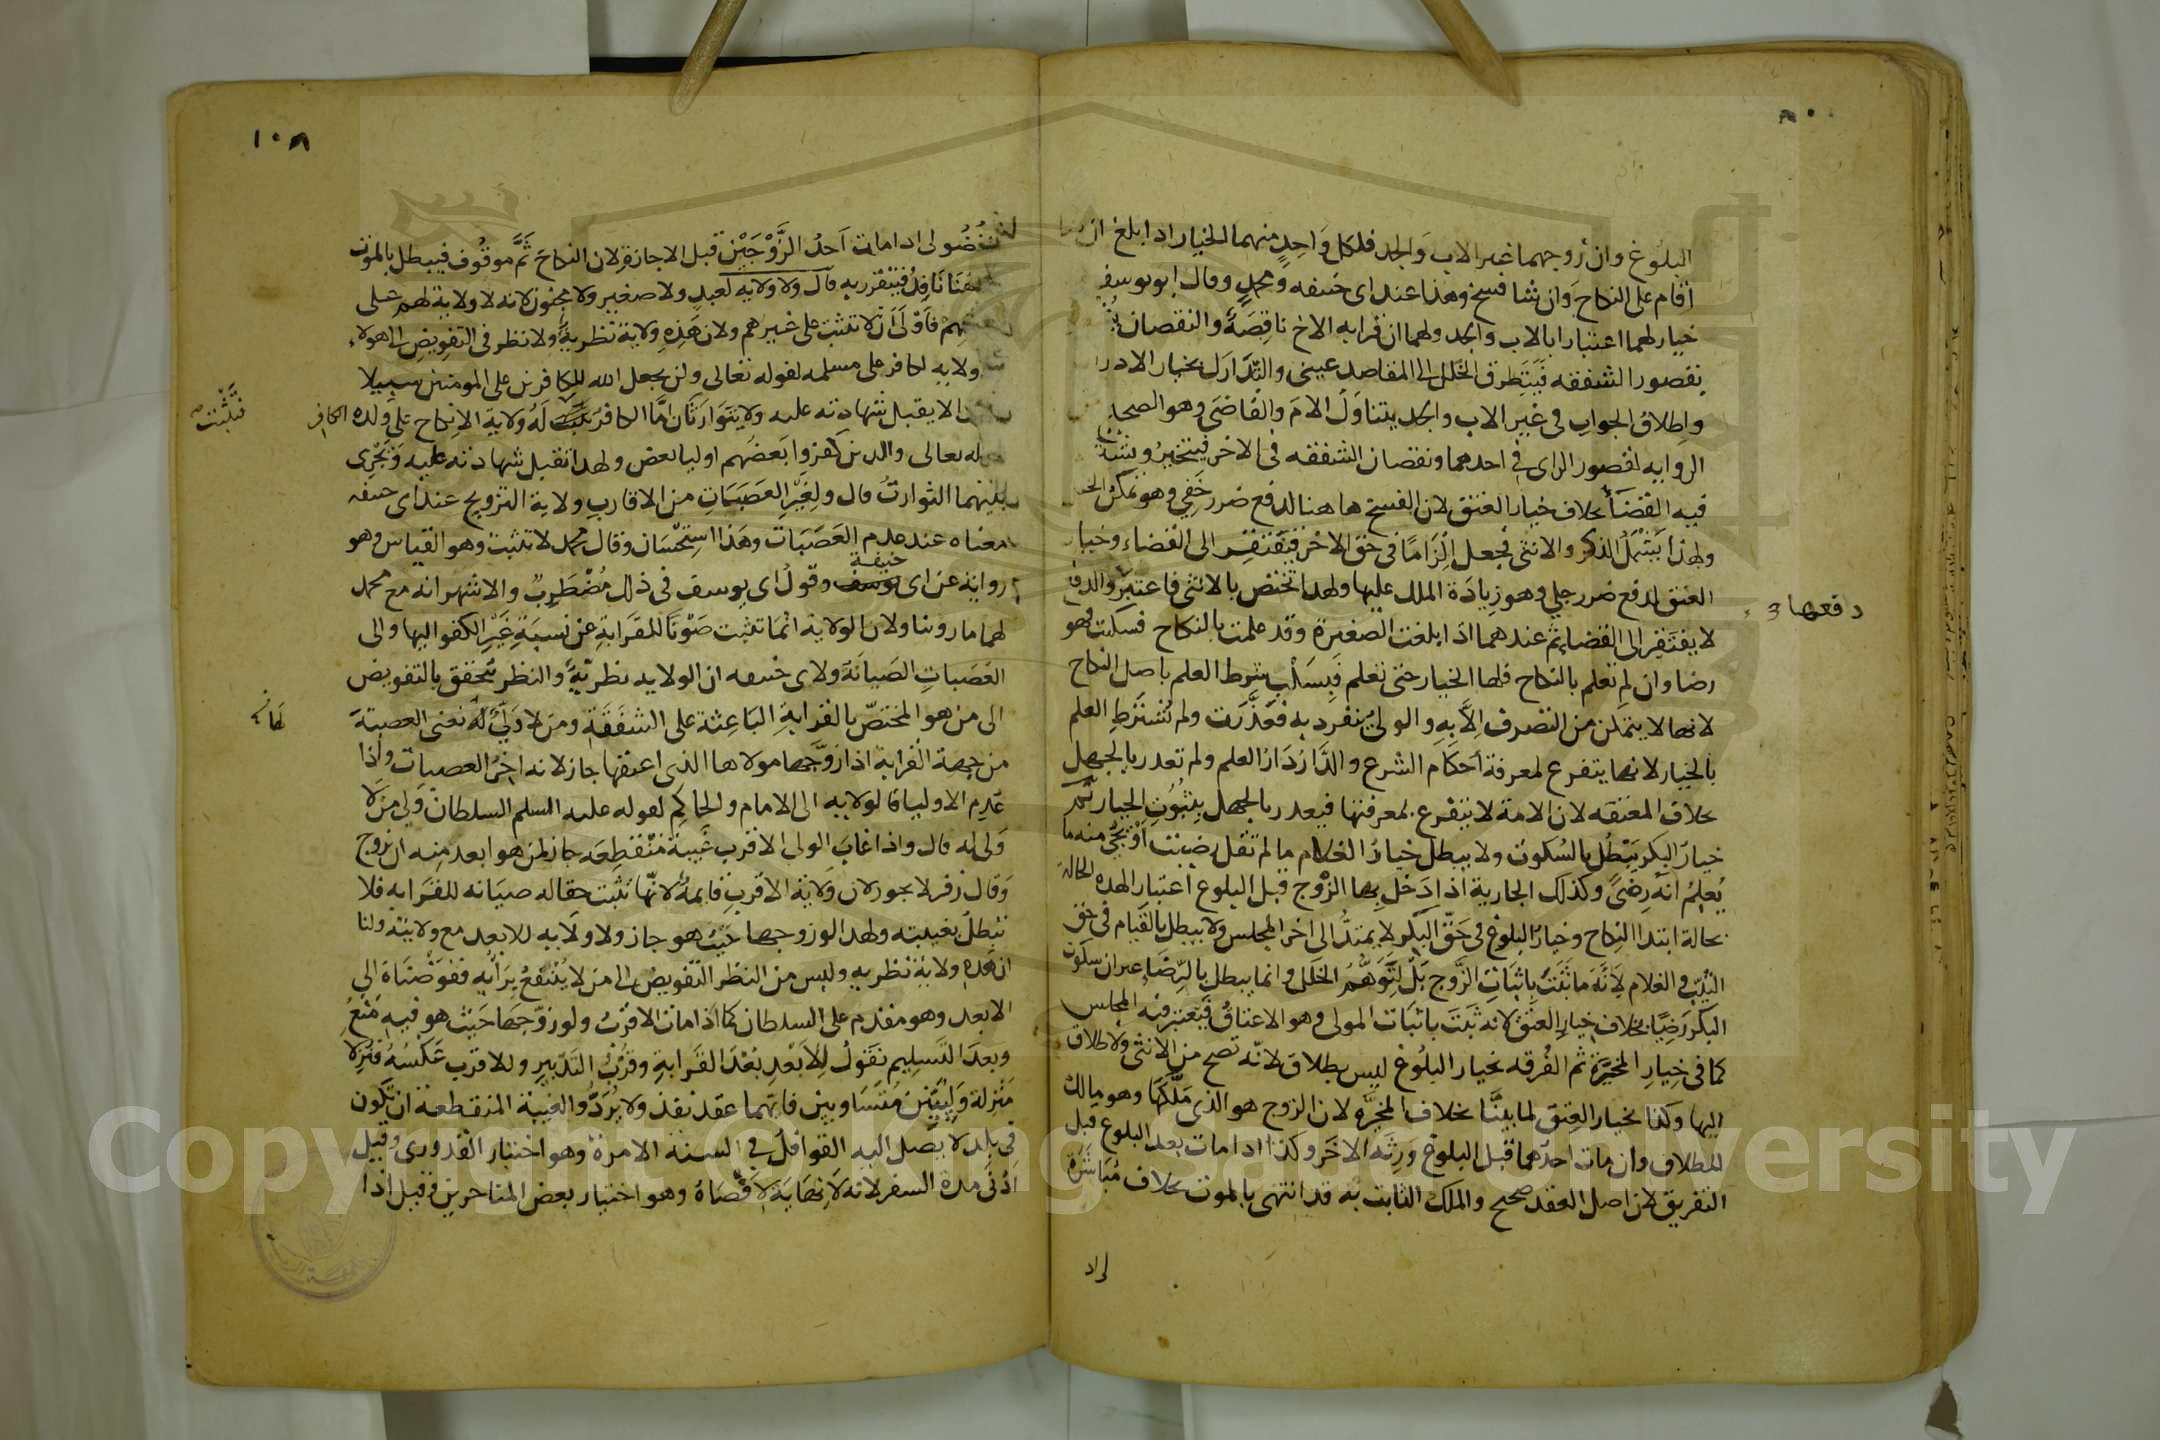 البلوغ وان زوجهما غير الاب والجد فلكل واحد منهما الخيار اذا بلغ ان
اقام على النكاح وان شا فسخ وهذا عند ابى حنيفه ومحمد وقال ابو يوسف
خيار لهما اعتبارا بالاب والجد ولهما ان قرابه الاخ ناقصة والنقصان
بقصور الشفقه فيتطرق الخلل الى المقاصد عيسى والتدارك بخيار الادرا
واطلاق الجواب في غير الاب والجد يتناول الام والقاضى وهو الصحيح
الروايه لقصور الراى في احدهما ونقصان الشفقه فى الاخر فيتخير ويشترط
فيه القضاء بخلاف خيار العتق لان الفسخ هاهنا لدفع ضرر خفي وهو تمكن الخلل
ولهذا يشمل الذكر والانثى فجعل الزاما في حق الاخر فيفتقر الى القضاء وخيار
العتق لدفع ضرر جلي وهو زيادة الملك عليها ولهذا تختص بالانثى فاعتبر والدفع
دفعها
لا يفتقر الى القضا ثم عندهما اذا بلغت الصغيرة وقد علمت بالنكاح فسكتت فهو
رضا وان لم تعلم بالنكاح فلها الخيار حتى تعلم فيسكت شرط العلم باصل النكاح
لانها لا يتمكن من التصرف الا به والولي ينفرد به فعذرت ولم تشترط العلم
بالخيار لانها يتفرغ لمعرفة احكام الشرع والدار دار العلم ولم تعذر بالجهل
بخلاف المعتقه لان الامة لا تتفرغ لمعرفتها فيعذر بالجهل بثبوت الخيار ثم
خيار البكر يبطل بالسكوت ولا يبطل خيار الغلام ما لم تقل رضيت او يجى منه ما
يعلم انه رضى وكذلك الجارية اذا دخل بها الزوج قبل البلوغ اعتبار الهذه الحالة
بحالة ابتدا النكاح وخيار البلوغ في حق البكر لا يمتد الى اخر المجلس ولا يبطل بالقيام في حق
الثيب والغلام لانه ما ثبت باثبات الزوج بل لتوهم الخلل وانما يبطل بالرضاء غير ان سكوت
البكر رضيا بخلاف خيار العتق لانه ثبت باثبات المولى وهو الاعتاق فيعتبر فيه المجلس
كما في خيار المخيرة ثم الفرقه بخيار البلوغ ليس بطلاق لانه تصح من الانثى ولا طلاق
اليها وكذا بخيار العتق لما بينا بخلاف المخيره لان الزوج هو الذى ملكها وهو مالك
للطلاق وان مات احدهما قبل البلوغ ورثه الاخر وكذا اذا مات بعد البلوغ قبل
التفريق لان اصل العقد صحيح والملك الثابت به قد انتهى بالموت بخلاف مباشرة
١٠٨
الفضولى اذا مات احد الزوجين قبل الاجازة لان النكاح ثم موقوف فيبطل بالموت
وههنا نافذ فيتقرر به قال ولا ولايه لعبد ولا صغير ولا مجنون لانه لا ولاية لهم على
انفسهم فاولى ان لا تثبت على غيرهم ولان هذه ولاية نظرية ولا نظر في التفويض الى هولاء
ولا ولايه لكافر على مسلمه لقوله تعالى ولن يجعل الله للكافرين على المومنين سبيلا
ولهذا لا يقبل شهادته عليه ولا يتوارثان اما الكافر له ولاية الانكاح على ولده الكافر
فتثبت
لقوله تعالى والذين كفروا بعضهم اوليا بعض ولهذا تقبل شهادته عليه ويجرى
بينهما التوارث قال ولغير العصبات من الاقارب ولاية التزويج عند ابى حنيفه
معناه عند عدم العصبات وهذا استحسان وقال محمد لا تثبت وهو القياس وهو
رواية عن ابى حنيفة وقول ابى يوسف في ذلك مضطرب والاشهر انه مع محمد
لهما ما روينا ولان الولاية انما تثبت صونا للقرابة عن نسبة غير الكفو اليها والى
العصبات الصيانة ولابى حنيفه ان الولايه نظرية والنظر يتحقق بالتفويض
الى من هو المختص بالقرابة الباعثة على الشفقة ومن لا ولي له نعنى العصبة
من جهة القرابة اذا زوجها مولاها الذى اعتقها جاز لانه اخر العصبات واذا
عدم الاوليا فالولايه الى الامام والحاكم لقوله عليه السلم السلطان ولي من لا
ولى له قال واذا غاب الولى الاقرب غيبة منقطعه جاز لمن هو ابعد منه ان يزوج
وقال زفر لا يجوز لان ولاية الاقرب قايمة لانها تثبت حقا له صيانه للقرابه فلا
تبطل بغيبته ولهذا لو زوجها حيث هو جاز ولا ولايه للابعد مع ولايته ولنا
ان هذه ولاية نظريه وليس من النظر التفويض الى من لا ينتفع برايه ففوضناة الى
الابعد وهو مقدم على السلطان كما اذا مات الاقرب ولو زوجها حيث هو فيه منع
وبعد التسليم نقول للابعد بعد القرابة وقرب التدبير وللاقرب عكسه فنزلا
منزلة وليين متساويين فايهما عقد نفذ ولا يرد والغيبة المنقطعة ان تكون
في بلد لا يصل اليه القوافل في السنة الا مرة وهو اختيار القدورى وقيل
ادنى مدة السفر لانه لا نهاية لاقصاة وهو اختيار بعض المتاخرين وقيل اذا
Copyright © King Saud University